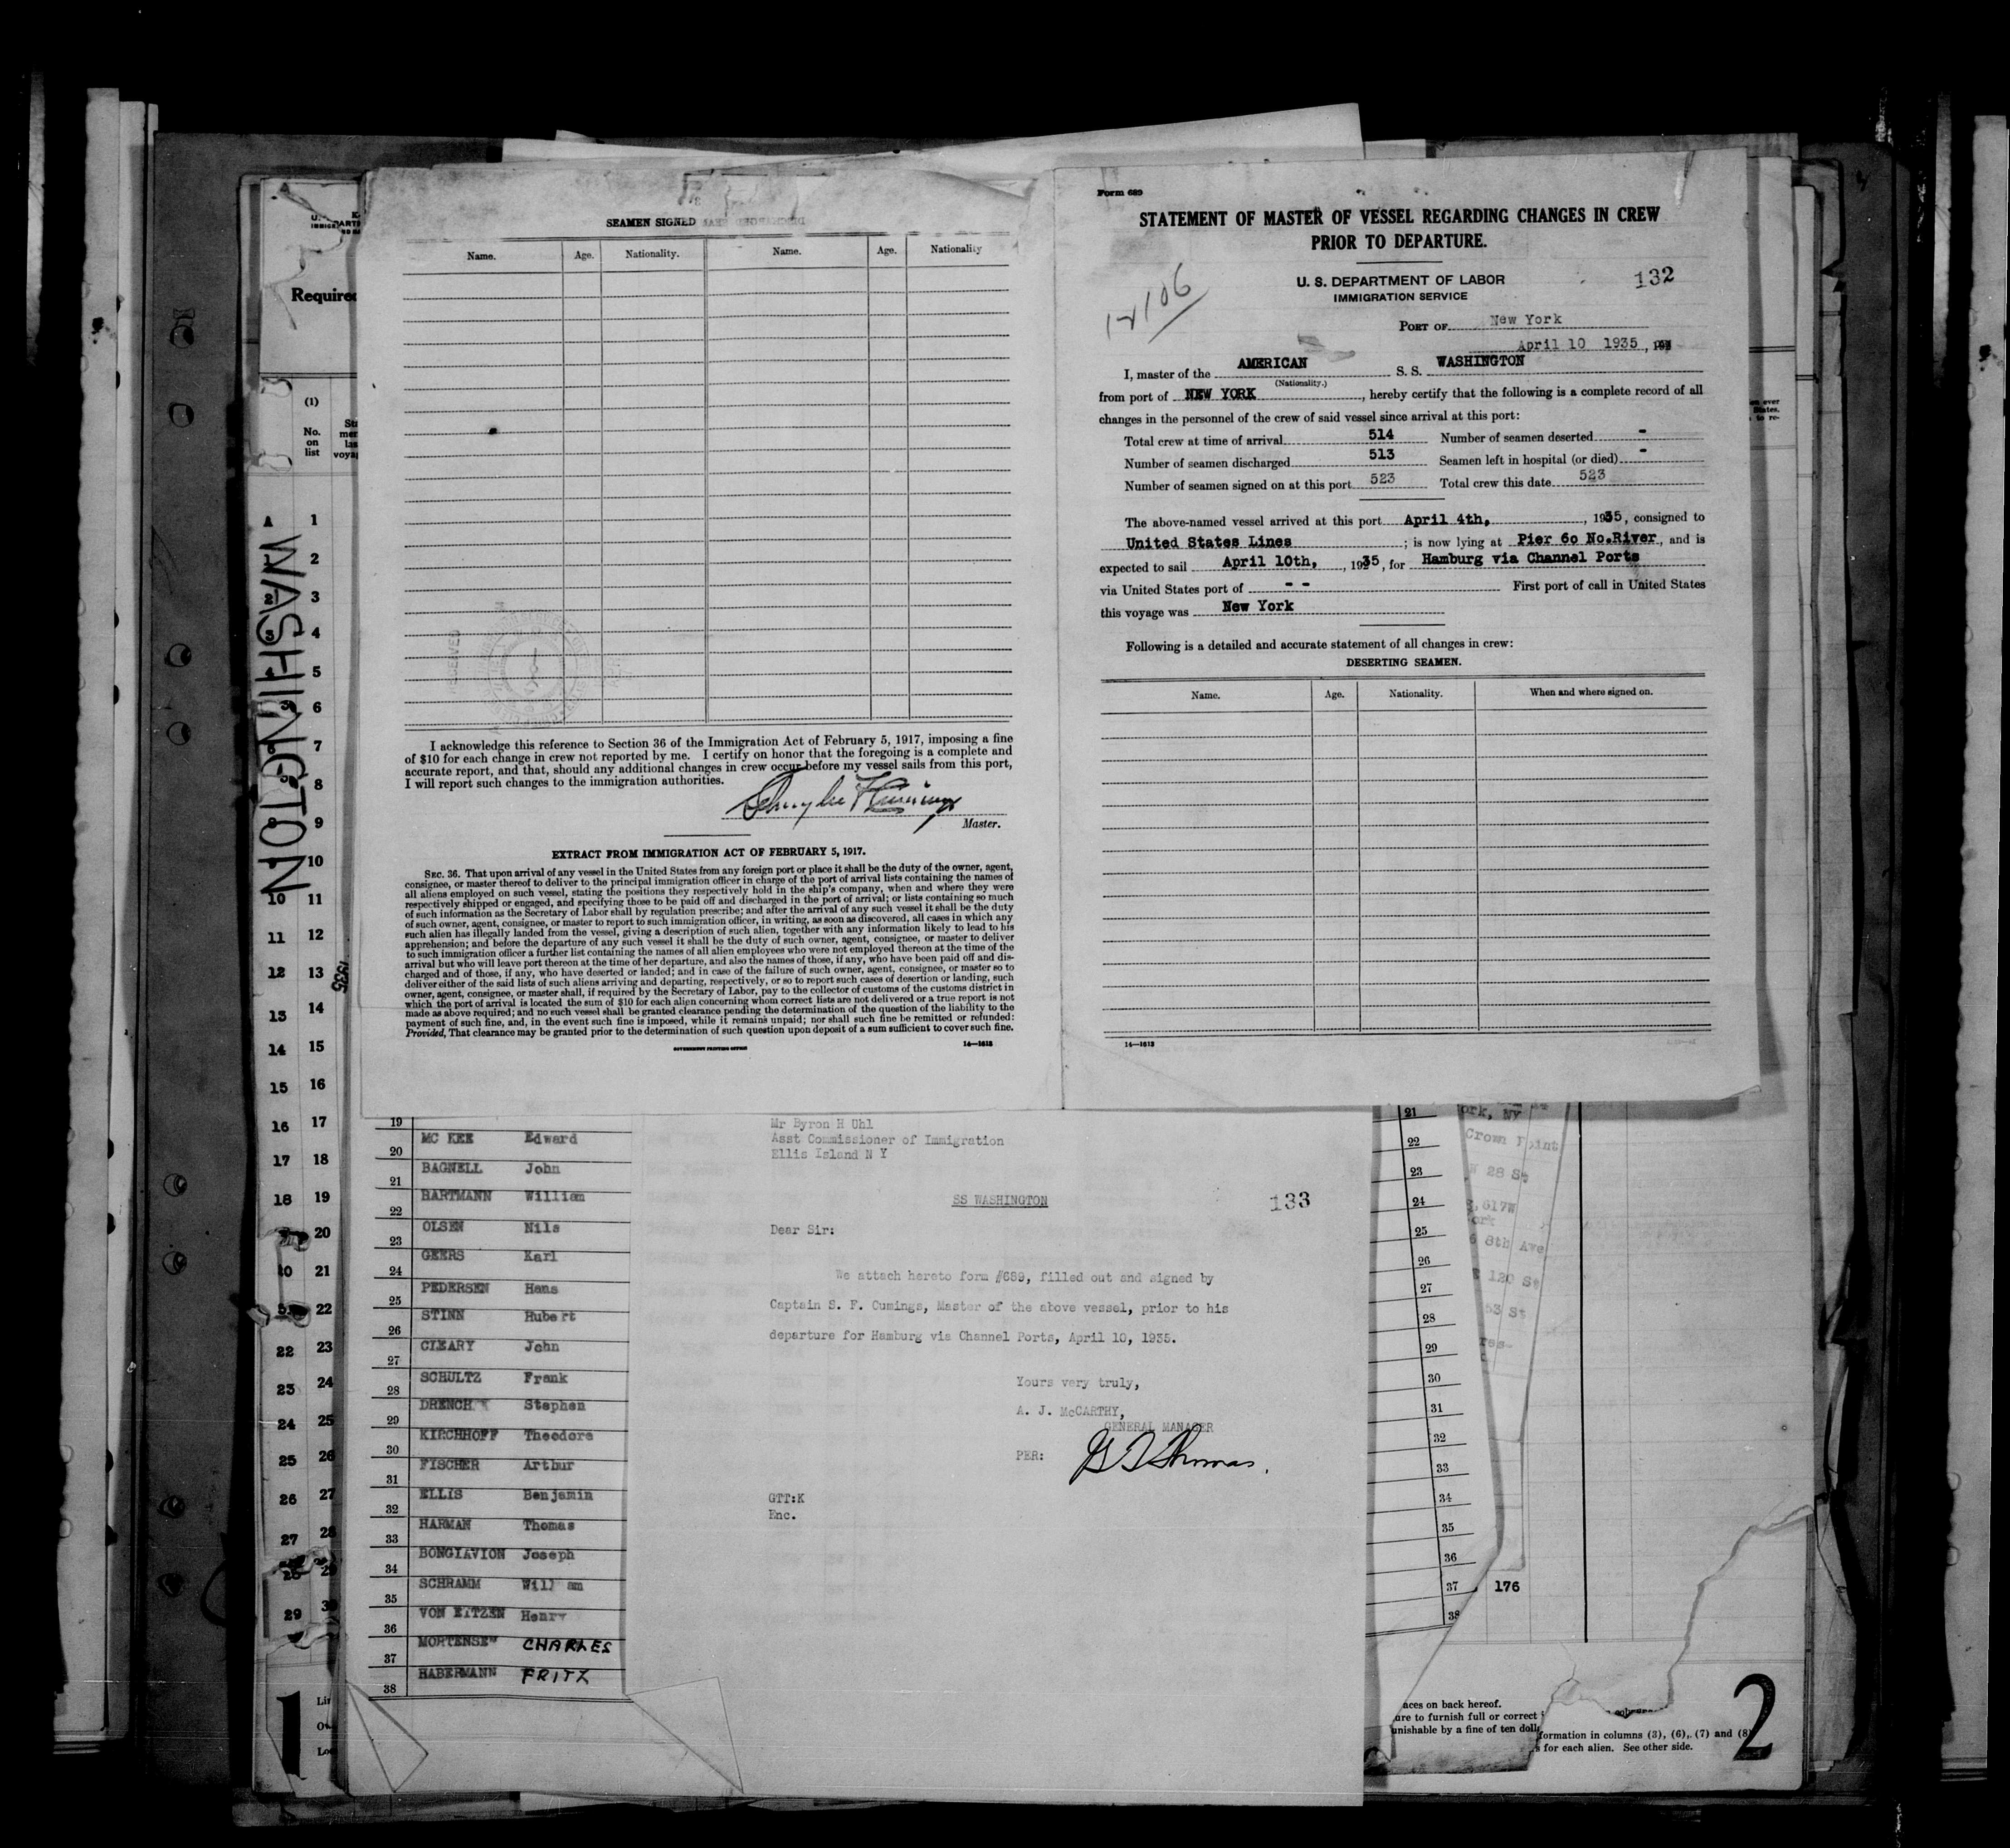 SEAMEN SIGNED
Name. Age. Nationality. Name. Age. Nationality
RECEIVED
I acknowledge this reference to Section 36 of the Immigration Act of February 5, 1917, imposing a fine
of $10 for each change in crew not reported by me. I certify on honor that the foregoing is a complete and
accurate report, and that, should any additional changes in crew occur before my vessel sails from this port,
I will report such changes to the immigration authorities.
Master.
EXTRACT FROM IMMIGRATION ACT OF FEBRUARY 5, 1917.
SEC. 36. That upon arrival of any vessel in the United States from any foreign port or place it shall be the duty of the owner, agent,
consignee, or master thereof to deliver to the principal immigration officer in charge of the port of arrival lists containing the names of
all aliens employed on such vessel, stating the positions they respectively hold in the ship's company, when and where they were
respectively shipped or engaged, and specifying those to be paid off and discharged in the port of arrival; or lists containing so much
of such information as the Secretary of Labor shall by regulation prescribe; and after the arrival of any such vessel it shall be the duty
of such owner, agent, consignee, or master to report to such immigration officer, in writing, as soon as discovered, all cases in which any
such alien has illegally landed from the vessel, giving a description of such alien, together with any information likely to lead to his
apprehension; and before the departure of any such vessel it shall be the duty of such owner, agent, consignee, or master to deliver
to such immigration officer a further list containing the names of all alien employees who were not employed thereon at the time of the
arrival but who will leave port thereon at the time of her departure, and also the names of those, if any, who have been paid off and dis-
charged and of those, if any, who have deserted or landed; and in case of the failure of such owner, agent, consignee, or master so to
deliver either of the said lists of such aliens arriving and departing, respectively, or so to report such cases of desertion or landing, such
owner, agent, consignee, or master shall, if required by the Secretary of Labor, pay to the collector of customs of the customs district in
which the port of arrival is located the sum of $10 for each alien concerning whom correct lists are not delivered or a true report is not
made as above required; and no such vessel shall be granted clearance pending the determination of the question of the liability to the
payment of such fine, and, in the event such fine is imposed, while it remains unpaid; nor shall such fine be remitted or refunded:
Provided, That clearance may be granted prior to the determination of such question upon deposit of a sum sufficient to cover such fine.
GOVERNMENT PRINTING OFFICE 14—1613
Form 689
STATEMENT OF MASTER OF VESSEL REGARDING CHANGES IN CREW
PRIOR TO DEPARTURE.
U. S. DEPARTMENT OF LABOR
IMMIGRATION SERVICE
132
12106
PORT OF New York
April 10 1935
I, master of the AMERICAN S. S. WASHINGTON
(Nationality.)
from port of NEW YORK, hereby certify that the following is a complete record of all
changes in the personnel of the crew of said vessel since arrival at this port:
Total crew at time of arrival 514 Number of seamen deserted -
Number of seamen discharged 513 Seamen left in hospital (or died) -
Number of seamen signed on at this port 523 Total crew this date 523
The above-named vessel arrived at this port April 4th, , 1935, consigned to
United States Lines ; is now lying at Pier 60 No.River, and is
expected to sail April 10th, , 1935, for Hamburg via Channel Ports
via United States port of - - First port of call in United States
this voyage was New York
Following is a detailed and accurate statement of all changes in crew:
DESERTING SEAMEN.
Name. Age. Nationality. When and where signed on.
14—1613
Required
(1)
No.
on
list
WASHINGTON
1935
1
2
3
4
5
6
7
8
9
10
10 11
11 12
12 13
13 14
14 15
15 16
16 17
17 18
18 19
20
21
22
22 23
23 24
24 25
25 26
26 27
27 28
29
1
19
MC KEE Edward
20
BAGNELL John
21
HARTMANN William
22
OLSEN Nils
23
GEERS Karl
24
PEDERSEN Hans
25
STINN Hubert
26
CLEARY John
27
SCHULTZ Frank
28
DRENCH Stephen
29
KIRCHHOFF Theodore
30
FISCHER Arthur
31
ELLIS Benjamin
32
HARMAN Thomas
33
BONGIAVION Joseph
34
SCHRAMM Will am
35
VON EITZEN Henry
36
MORTENSEN CHARLES
37
HABERMANN FRITZ
38
Mr Byron H Uhl
Asst Commissioner of Immigration
Ellis Island N Y
SS WASHINGTON
133
Dear Sir:
We attach hereto form #689, filled out and signed by
Captain S. F. Cumings, Master of the above vessel, prior to his
departure for Hamburg via Channel Ports, April 10, 1935.
Yours very truly,
A. J. McCARTHY,
GENERAL MANAGER
PER: G T Thomas.
GTT:K
Enc.
21 ork, NY
22 Crown Point
23 W 28 St
24 617W
ork
25 8th Ave
26 120 St
27 53 St
28
29
30
31
32
33
34
35
36
37 176
38
aces on back hereof.
ure to furnish full or correct
unishable by a fine of ten doll
formation in columns (3), (6), (7) and (8)
s for each alien. See other side.
2